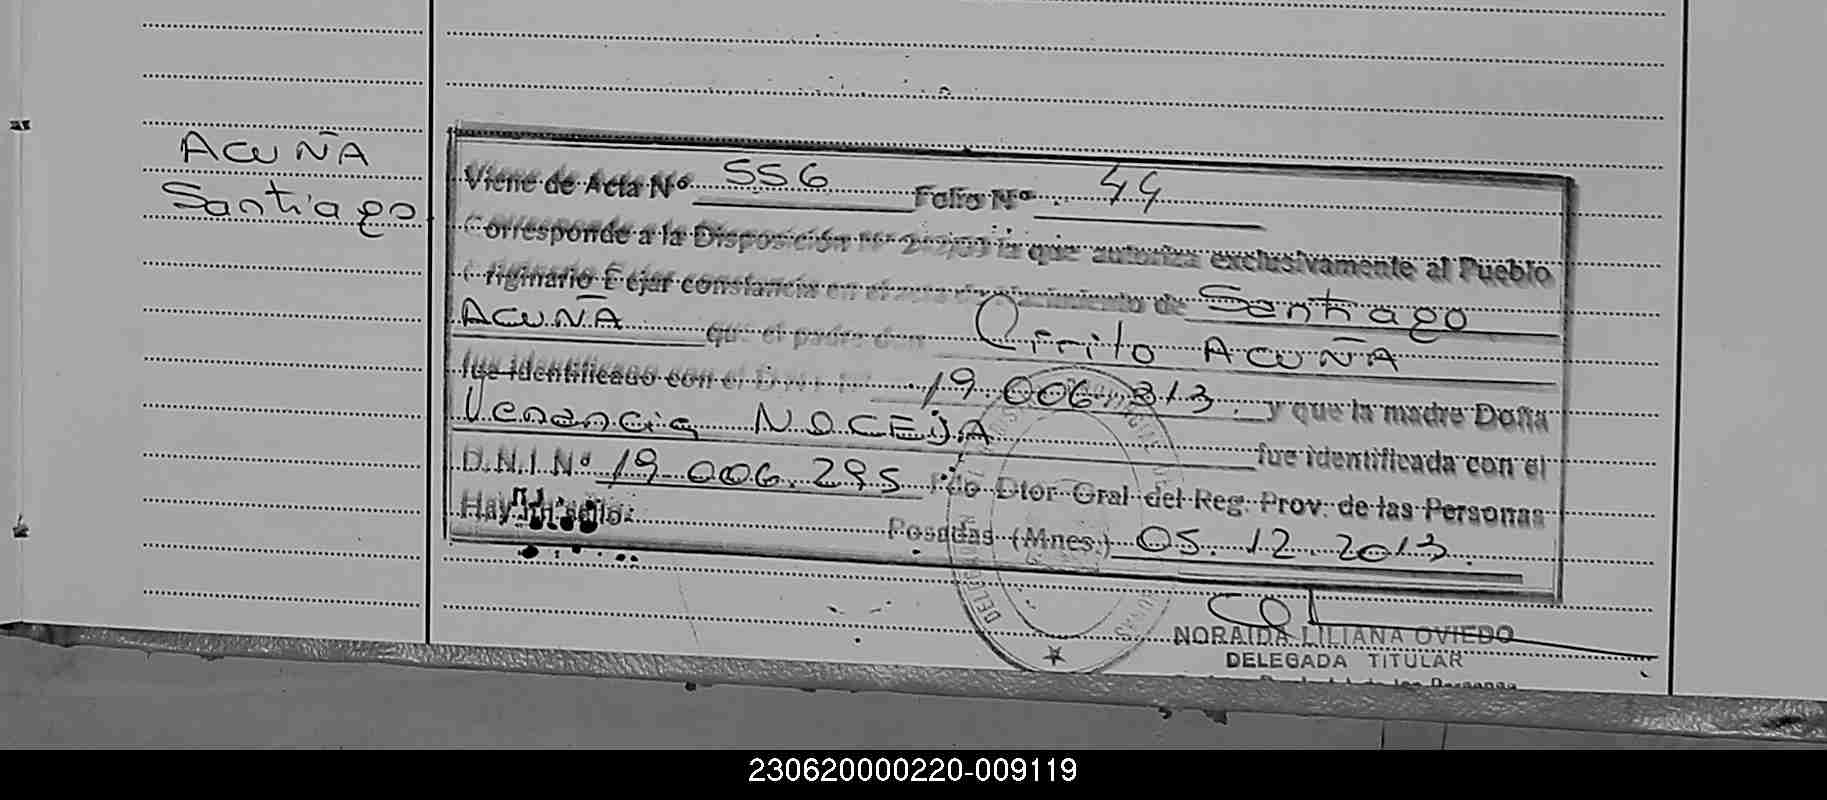 ACUÑA
Santiago
Viene de Acta Nº 556 Folio Nº 44
Corresponde a la Disposición Nº la que autoriza exclusivamente al Pueblo
Originario Dejar constancia en el acta de Nacimiento de Santiago
ACUÑA que el padre don Cirilo ACUÑA
fue identificado con el D.N.I. Nº 19.006.313. y que la madre Doña
Venancia NOCEDA
fue identificada con el
D.N.I. Nº 19.006.295 Fdo Dtor Gral del Reg. Prov. de las Personas
Hay un sello: Posadas (Mnes.) 05.12.2013
NORAIDA LILIANA OVIEDO
DELEGADA TITULAR
230620000220-009119